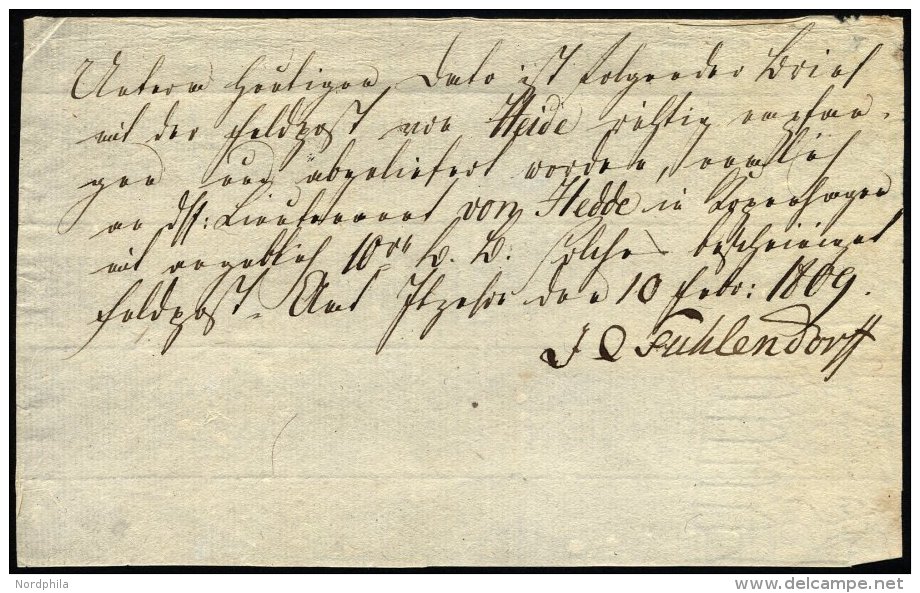 Unterm heutigen Dato ist folgender Brief
mit der Feldpost von Heide richtig empfan-
gen und abgeliefert worden, nemlich
an Lieutenant von Hedde in Kopenhagen
mit angeblich 10 Solches bescheiniget
Feldpost-Amt Itzehoe den 10 Febr: 1809.
J Fuhlendorff
Nordphila
delcampe.net